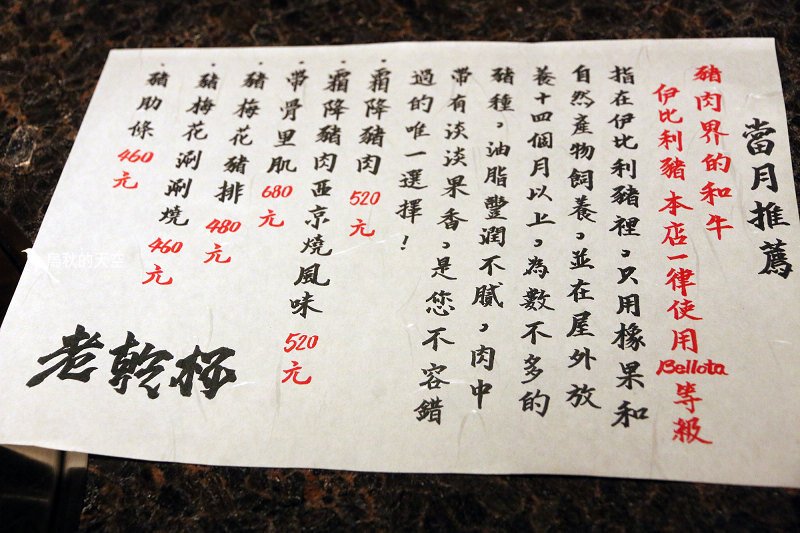 當月推薦
豬肉界的和牛
伊比利豬本店一律使用Bellota等級
指在伊比利豬裡，只用橡果和
自然產物飼養，並在屋外放
養十四個月以上，為數不多的
豬種，油脂豐潤不膩，肉中
帶有淡淡果香，是您不容錯
過的唯一選擇！
・霜降豬肉 520元
・霜降豬肉西京燒風味 520元
・帶骨里肌 680元
・豬梅花豬排 480元
・豬梅花涮涮燒 460元
・豬肋條 460元
老乾杯
烏秋的天空